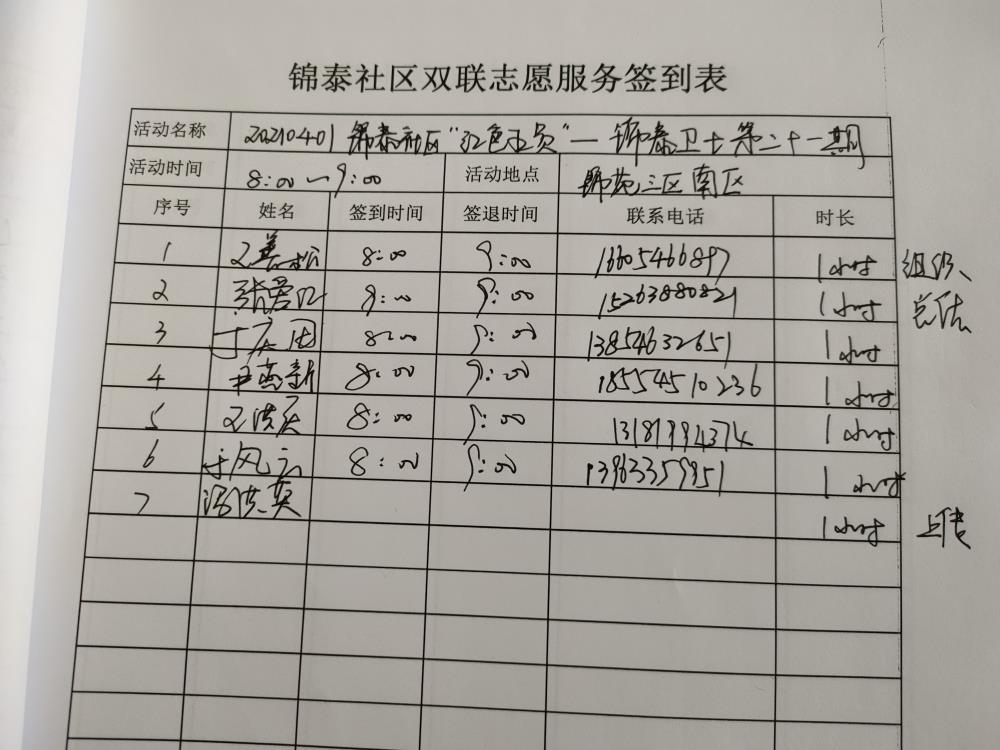 锦泰社区双联志愿服务签到表
活动名称 20210401 锦泰社区“红色 员”— 锦泰卫士第二十一期
活动时间 8:00—9:00 活动地点 锦苑三区南区
序号 姓名 签到时间 签退时间 联系电话 时长
1 8:00 9:00 16605466897 1小时 组织、
2 9:00 15263880821 1小时 总结
3 8:00 9:00 13854632651 1小时
4 8:00 9:00 18554510236 1小时
5 8:00 9:00 13181994374 1小时
6 于风云 8:00 9:00 13963359951 1小时
7 洪英 1小时 上传